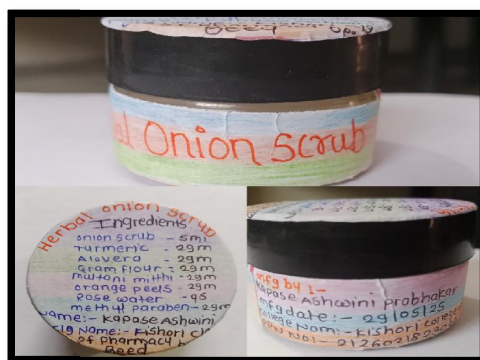 Beed
al Onion Scrub
Herbal onion Scrub
Ingredients
onion scrub - 5ml
Turmeric - 2gm
Alovera - 2gm
Gram flour - 2gm
multani mitthi - 2gm
orange peels - 2gm
Rose water - qs
methyl paraben - 2gm
Name:- Kapase Ashwini
clg Name:- Kishori
of Pharmacy
Beed
mfg by :-
Kapase Ashwini Prabhakar
mfg date:- 29/05/25
College Nam:- Kishori college